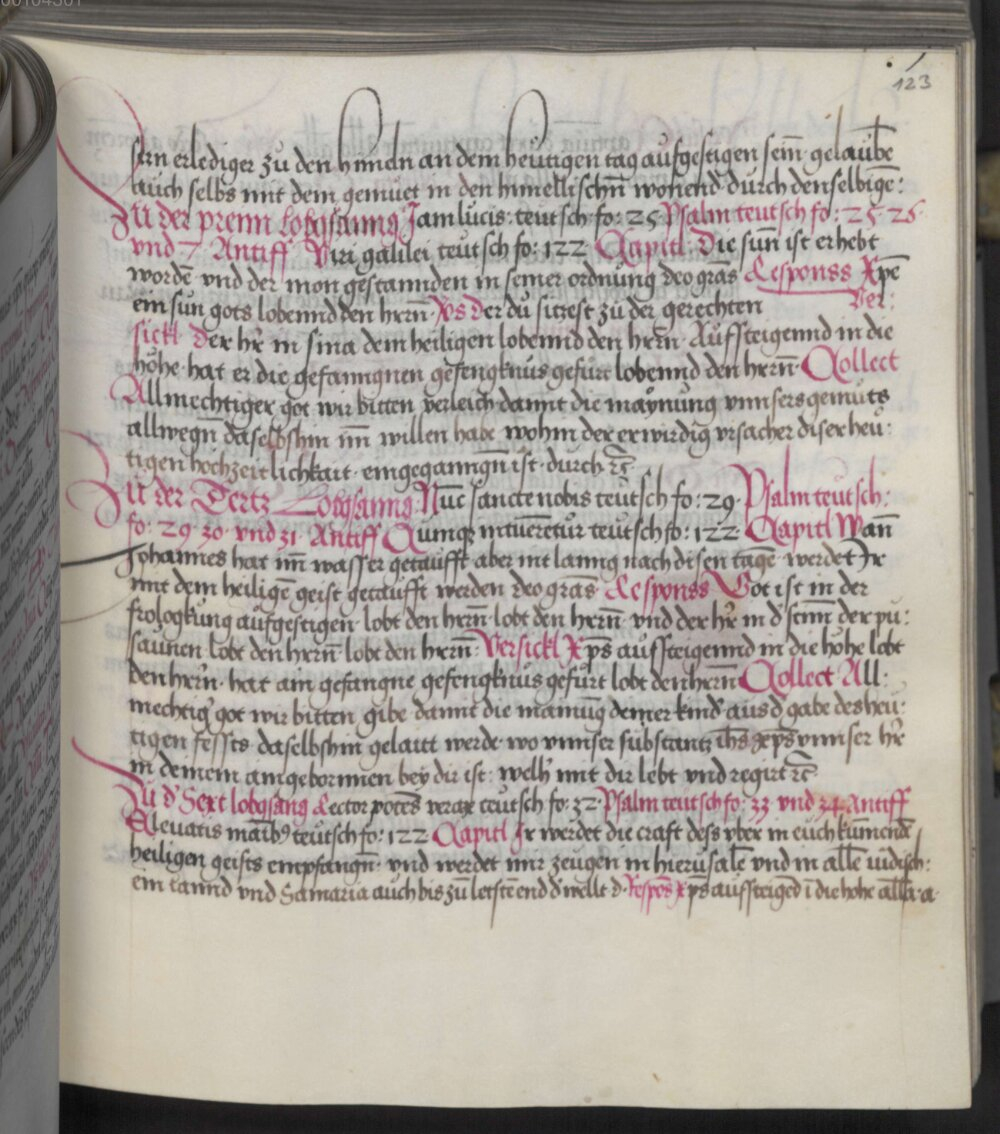 123
sern erlediger zu den himeln an dem heutigen tag aufgestigen sein gelaubē
auch selbs mit dem gemuet in den himellischn̄ wonend durch denselbigē:
Zu der preim lobgsanng Jam lucis: teutsch fo: 25 Psalm teutsch fo: 25 26
vnd 7 Antiff Viri galilei teutsch fo: 122 Capitl Die sun ist erhebt
wordē vnd der mon gestannden in seiner ordnung deo grās Responss Xpē
ein sun gots lobennd den hrn̄ Vs Der du sitzest zu der gerechten Ver:
sickl Der hr̄ in sina dem heiligen lobennd den hrn̄ Auffsteigennd in die
höhe hat er die gefanngnen gefengknus gefürt lobennd den herrn̄ Collect
Allmechtiger got wir bitten verleich damit die maÿnung vnnsers gemuts
allwegn̄ daselbshin im̄ willen habe wohin der erwirdig vrsacher diser heu:
tigen hochzeitlichkait eingeganngn̄ ist durch ꝛc̄
Zu der Tertz Lobgsanng Nūc sancte nobis teutsch fo: 29 Psalm teutsch:
fo: 29 30 vnd 31 Antiff Cumqꝫ intuerētur teutsch fo: 122 Capitl Wan̄
Johannes hat im̄ wasser getaufft aber nit lanng nach disen tagē werdet Jr
mit dem heiligē geist getaufft werden deo grās Responss Got ist in der
frologkung aufgestigen lobt den hern̄ lobt den hern̄ vnd der hr̄ in d' stim̄ der pu:
saunen lobt den herrn̄ lobt den hern̄ Versickl Xps̄ auffsteigennd in die höhe lobt
den hrn̄ hat ain gefangne gefengknus gefürt lobt den hern̄ Collect All:
mechtig' got wir bitten gibe damit die mainūg deiner kind' aus d' gabe des heu:
tigen fessts daselbshin gelaitt werde wo vnnser substantz ihs̄ xps̄ vnnser hr̄
in deinem aingebornnen beÿ dir ist: welh' mit dir lebt vnd regirt ꝛc̄
Zu d' Sext lobgsang Rector potēs verax teutsch fo: 32 Psalm teutsch fo: 33 vnd 34 Antiff
Eleuatis manibꝰ teutsch fo: 122 Capitl Jr werdet die craft dess vber in euch kumendē
heiligen geists empfangn̄ vnd werdet mir zeugen in hierusalē vnd in allē iudisch:
em lannd vnd Samaria auch bis zu letstē end d' wellt d. Respōs Xps auffsteigēd ī die hohe alla a